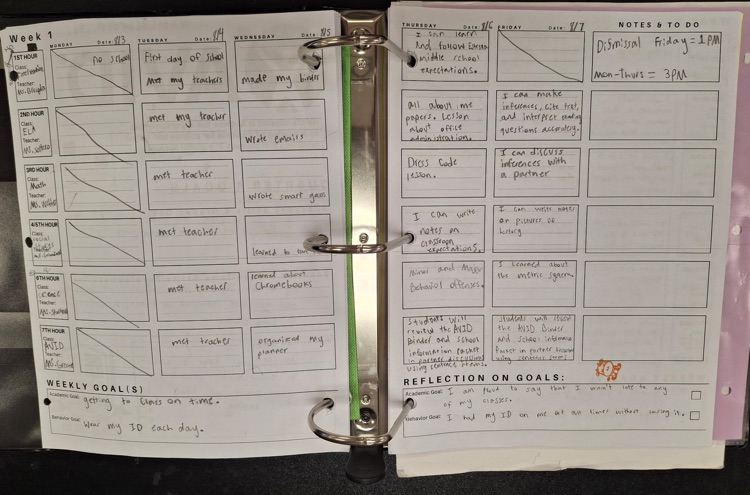 Week 1
MONDAY Date: 8/3
TUESDAY Date: 8/4
WEDNESDAY Date: 8/5
1ST HOUR
Class:
Teacher:
no school
First day of school
Met my teachers
made my binder
2ND HOUR
Class:
ELA
Teacher:
met my teacher
Wrote emails
3RD HOUR
Class:
Math
Teacher:
met teacher
Wrote smart goals
4/5TH HOUR
Class:
Social
Teacher:
met teacher
learned to
6TH HOUR
Class:
Science
Teacher:
met teacher
learned about
Chromebooks
7TH HOUR
Class:
AVID
Teacher:
met teacher
organized my
planner
WEEKLY GOAL(S)
Academic Goal: getting to class on time.
Behavior Goal: Wear my ID each day.
THURSDAY 8/6
FRIDAY 8/7
NOTES & TO DO
I can learn
and follow
middle school
expectations.
Dismissal Friday = 1 PM
Mon-Thurs = 3PM
all about me
papers. Lesson
about office
administration.
I can make
inferences, cite text,
and interpret
questions accurately.
Dress Code
lesson.
I can discuss
inferences with
a partner
I can write
notes on
classroom
expectations.
I can write notes
on pictures of
history.
Minor and Major
Behavior offenses.
I learned about
the metric system.
Students will
review the AVID
Binder and school
information packet
in partner discussions
using sentence stems.
Students will
the AVID Binder
and school
packet in partner
using sentence stems.
REFLECTION ON GOALS:
Academic Goal: I am proud to say that I wasn't late to any
of my classes.
Behavior Goal: I had my ID on me at all times without losing it.